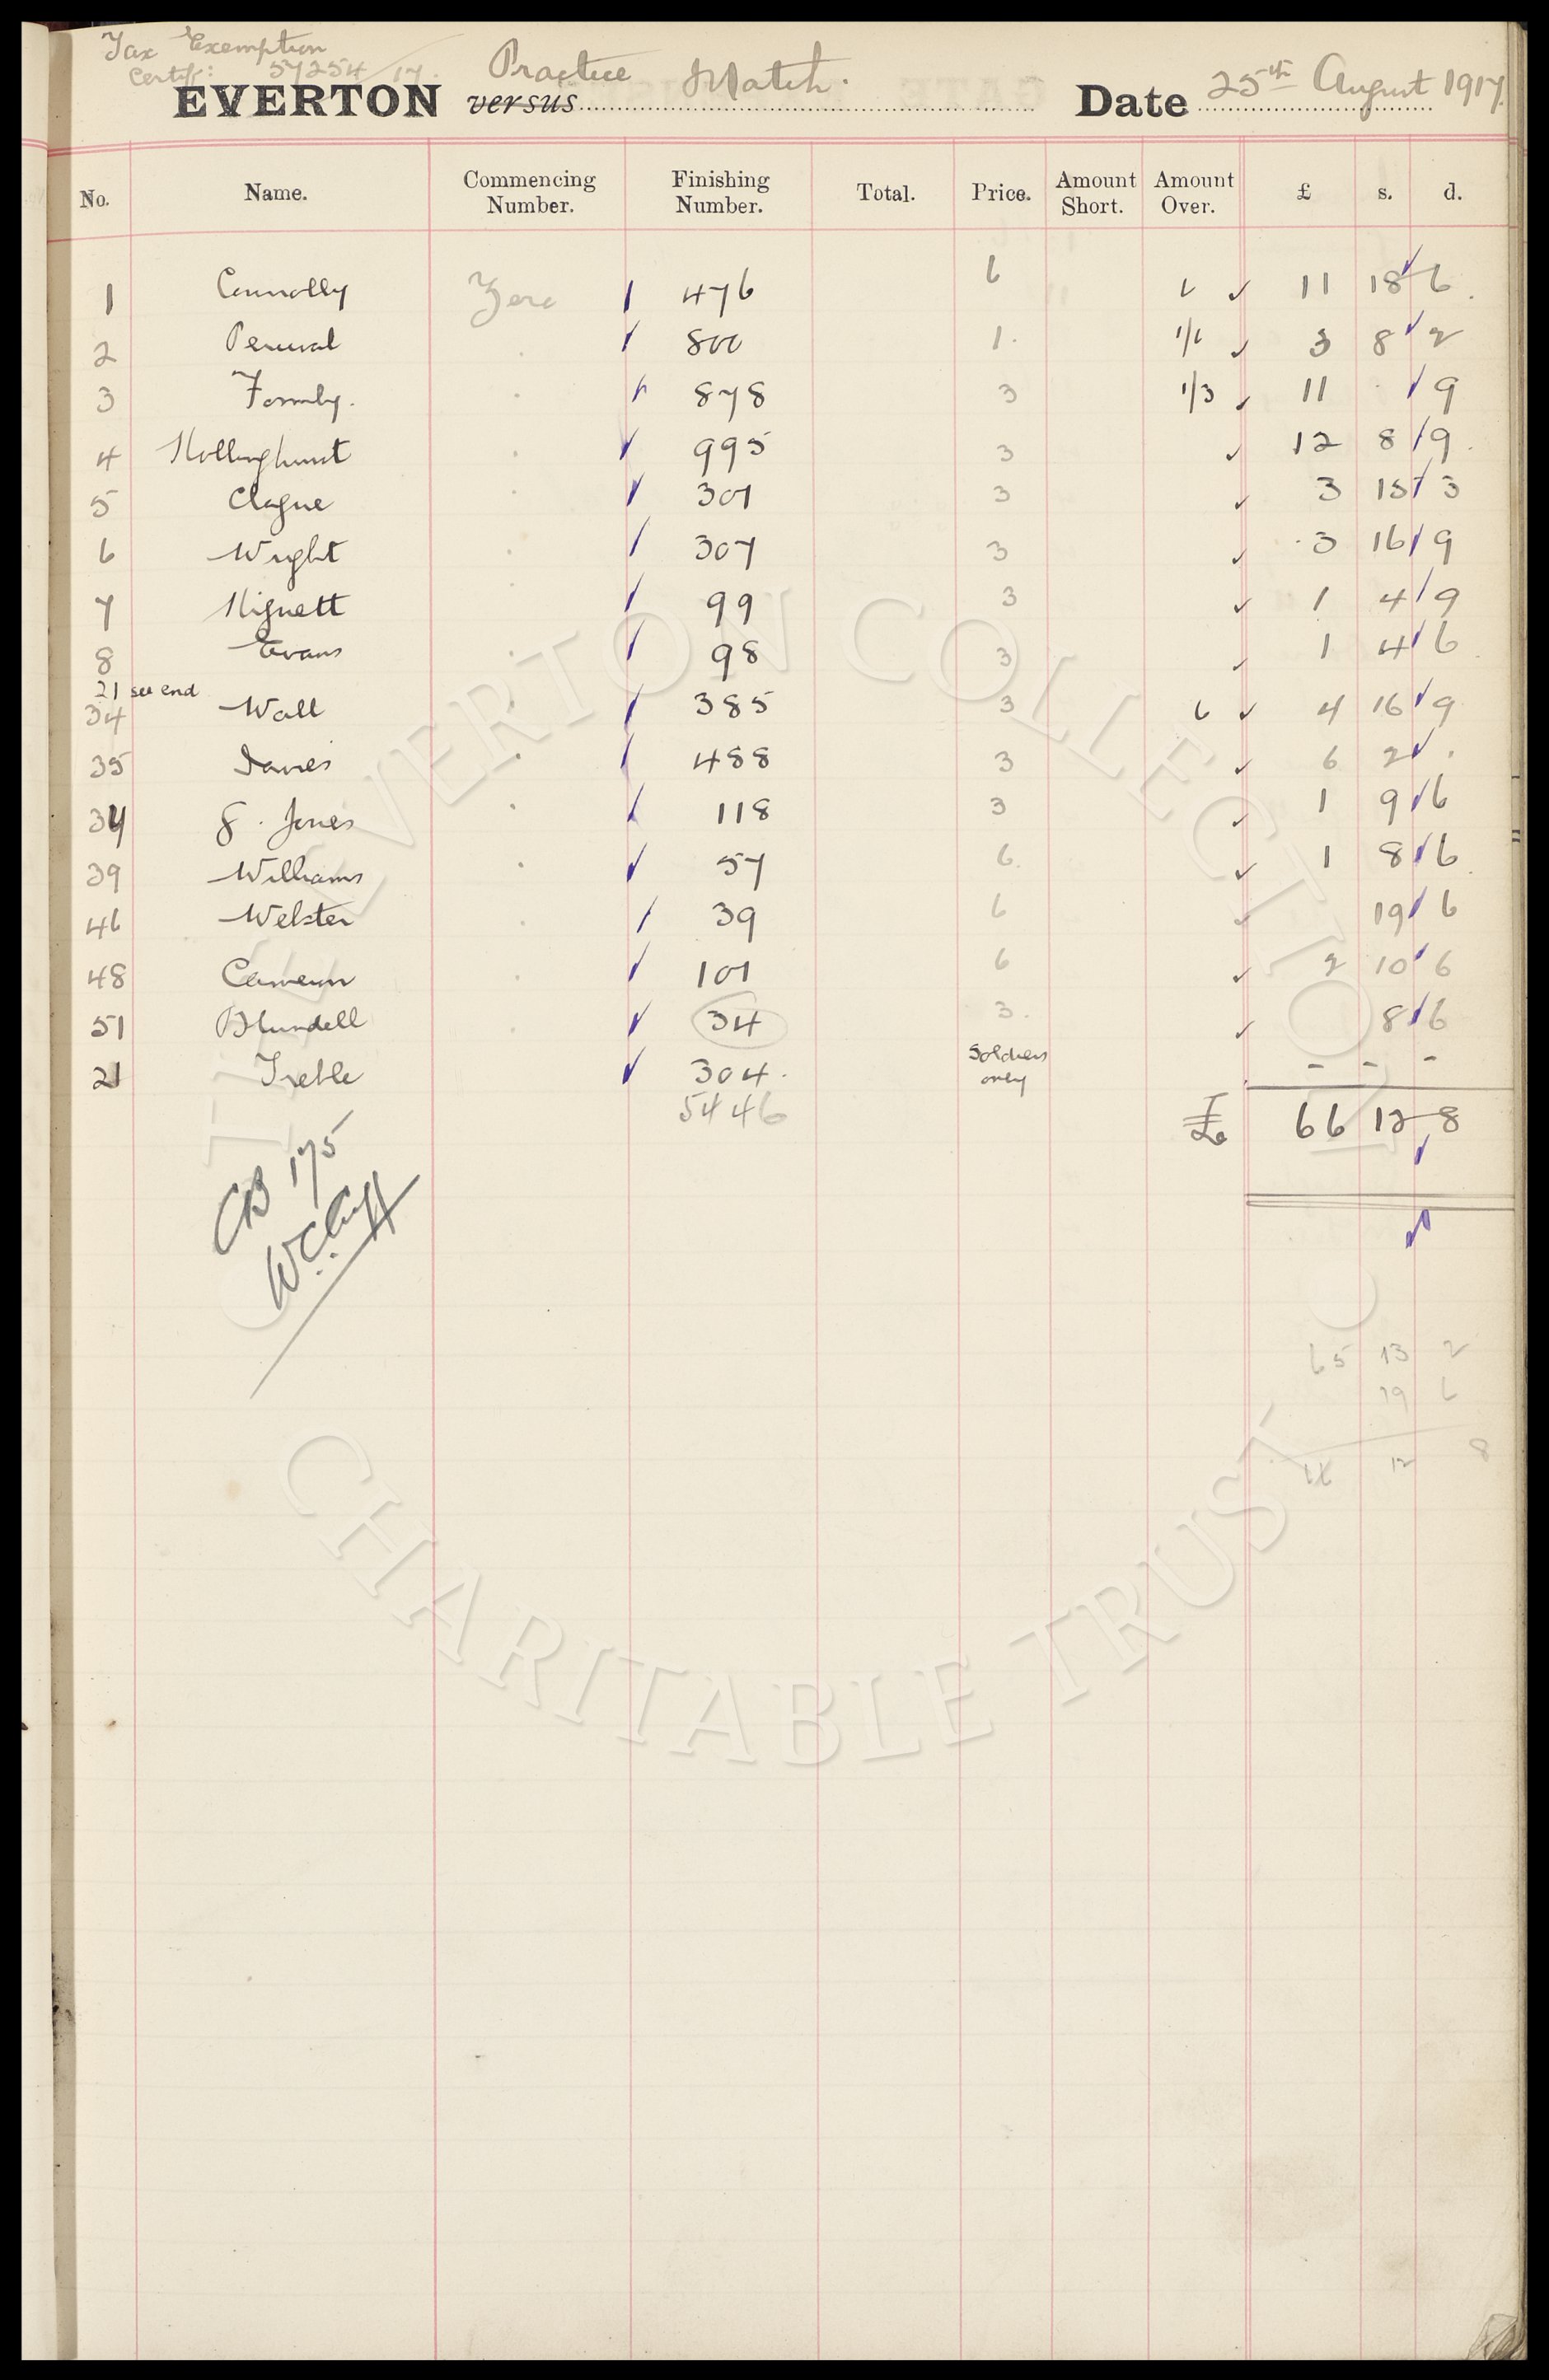 Tax Exemption
Certif: 57254/17.
EVERTON versus Practice Match. Date 25th August 1917.
No. Name. Commencing Number. Finishing Number. Total. Price. Amount Short. Amount Over. £ s. d.
1 Connolly Zero 476 6 6 11 18 6
2 Percival . 800 1. 1/6 3 8 2
3 Formby. . 878 3 1/3 11 . 9
4 Hollinghurst . 995 3 12 8 9
5 Clague . 301 3 3 15 3
6 Wright . 307 3 3 16 9
7 Hignett . 99 3 1 4 9
8 Evans . 98 3 1 4 6
21 see end
34 Wall 385 3 6 4 16 9
35 Davies . 488 3 6 2 .
34 Jones . 118 3 1 9 6
39 Williams . 57 6 1 8 6
46 Webster . 39 6 19 6
48 Cameron . 101 6 2 10 6
51 Blundell . 34 3. 8 6
21 Treble 304. Soldiers only - - -
5446 £ 66 12 8
CB 175
W.C. Cuff
65 13 2
19 6
66 12 8
EVERTON COLLECTION
CHARITABLE TRUST